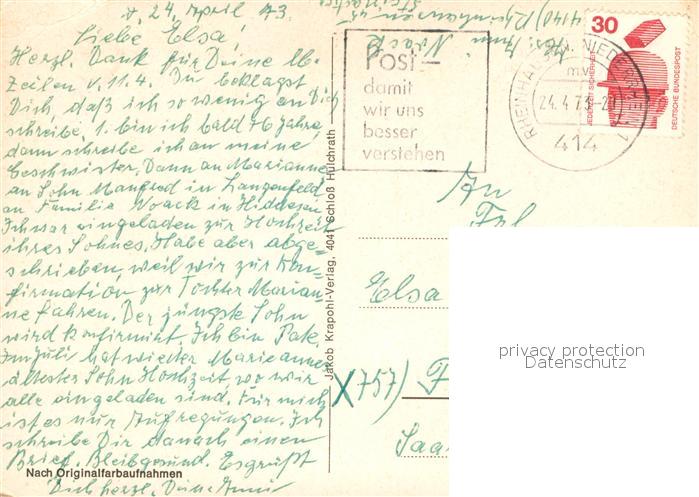 d. 24. April 73.
Liebe Elsa!
Herzl. Dank für Deine lb.
Zeilen v. 11.4. Du beklagst
Dich, daß ich so wenig an Dich
schreibe. 1. bin ich bald 76 Jahre,
dann schreibe ich an meine
Geschwister. Dann an Marianne
an Sohn Manfred in Langenfeld
an Familie Noack in Hiddesen.
Ich war eingeladen zur Hochzeit
ihres Sohnes. Habe aber abge-
schrieben, weil wir zur Kon-
firmation zur Tochter Marian-
ne fahren. Der jüngste Sohn
wird konfirmiert. Ich bin Pate.
Im Juli hat wieder Mariannes
ältester Sohn Hochzeit, wo wir
alle eingeladen sind. Für mich
ist es nur Aufregungen. Ich
schreibe Dir danach einen
Brief. Bleib gesund. Es grüßt
Dich herzl. Deine Anni
Nach Originalfarbaufnahmen
Jakob Krapohl-Verlag, 4041 Schloß Hülchrath
Abs. Anni Noack
4140) Rheinhausen
Post –
damit
wir uns
besser
verstehen
RHEINHAUSEN, NIEDERRHEIN 1
mv
24.4.73-20
414
30
JEDERZEIT SICHERHEIT
DEUTSCHE BUNDESPOST
An
Frl.
Elsa
X 757) F
Saa
privacy protection
Datenschutz